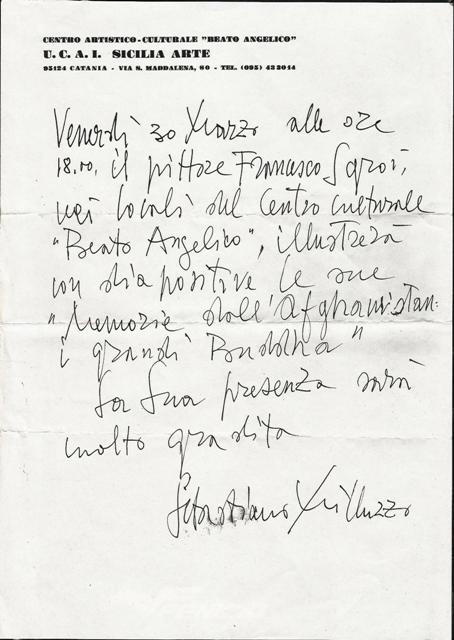 CENTRO ARTISTICO-CULTURALE "BEATO ANGELICO"
U. C. A. I. SICILIA ARTE
95124 CATANIA - VIA S. MADDALENA, 80 - TEL. (095) 433014
Venerdì 30 Marzo alle ore
18.00, il pittore Francesco Sgroi,
nei locali del Centro culturale
"Beato Angelico", illustrerà
con diapositive le sue
"Memorie dall'Afghanistan:
i grandi Buddha"
La Sua presenza sarà
molto gradita
Sebastiano Milluzzo